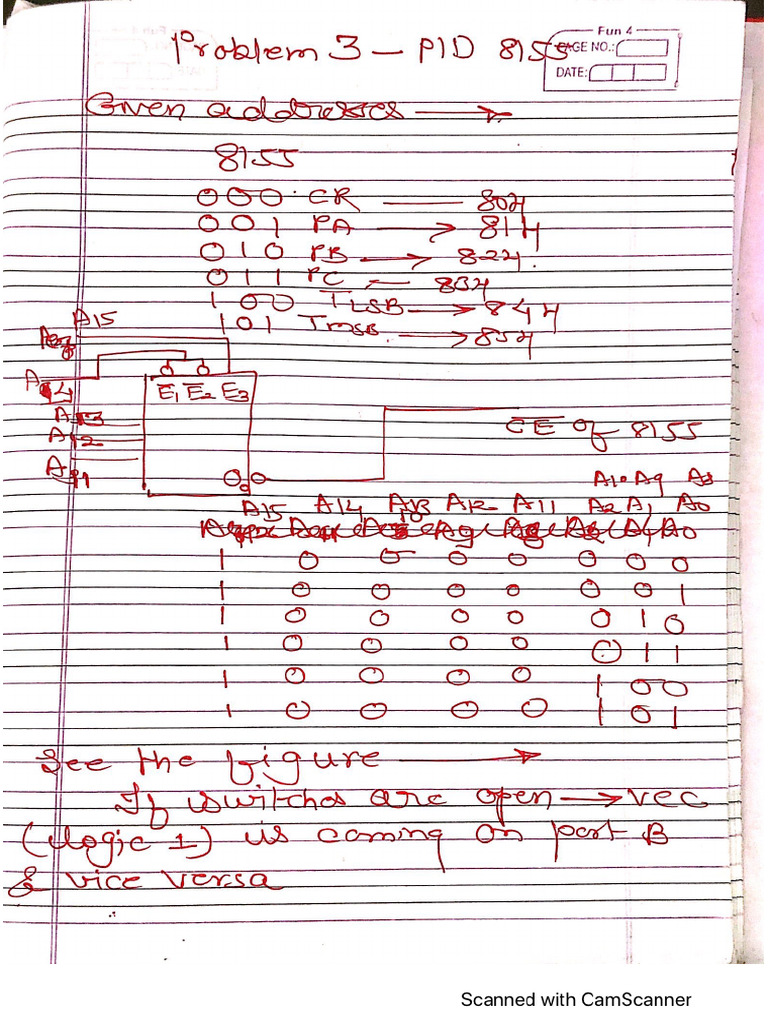 Problem 3 - PID 8155
Fun 4
PAGE NO.:
DATE:
Given addresses →
8155
000 CR — 80H
001 PA → 81H
010 PB → 82H
011 PC — 83H
100 TLSB → 84H
101 TMSB → 85H
A15
A14
A13
A12
A11
E1 E2 E3
O0
CE of 8155
A10 A9 A8
A15 A14 A13 A12 A11 A2 A1 A0
1 0 0 0 0 0 0 0
1 0 0 0 0 0 0 1
1 0 0 0 0 0 1 0
1 0 0 0 0 0 1 1
1 0 0 0 0 1 0 0
1 0 0 0 0 1 0 1
See the figure →
If switches are open → vcc
(logic 1) is coming on port B
& vice versa
Scanned with CamScanner